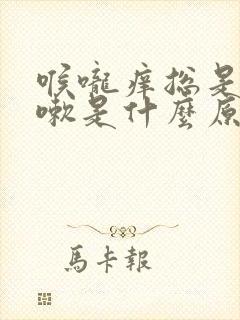 喉嚨痒總是
嗽是什麼原
馬卡報